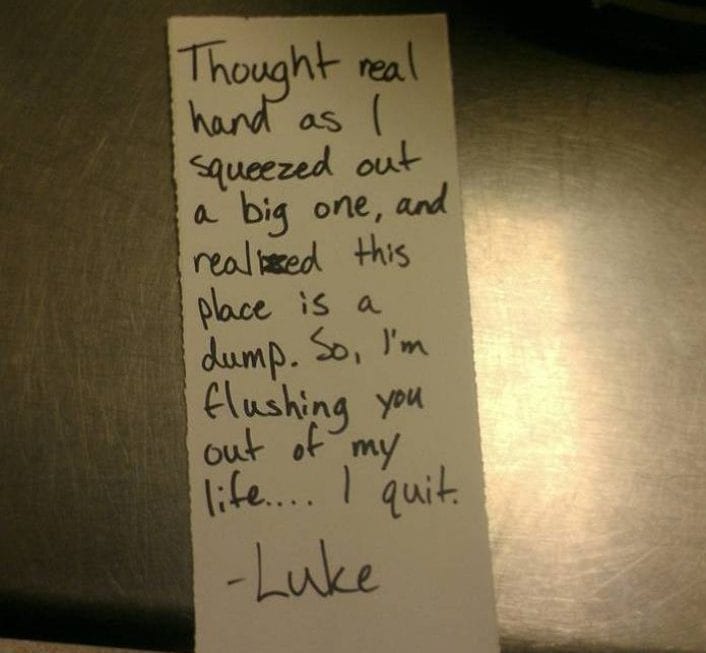 Thought real
hand as I
squeezed out
a big one, and
realized this
place is a
dump. So, I'm
flushing you
out of my
life.... I quit.
-Luke